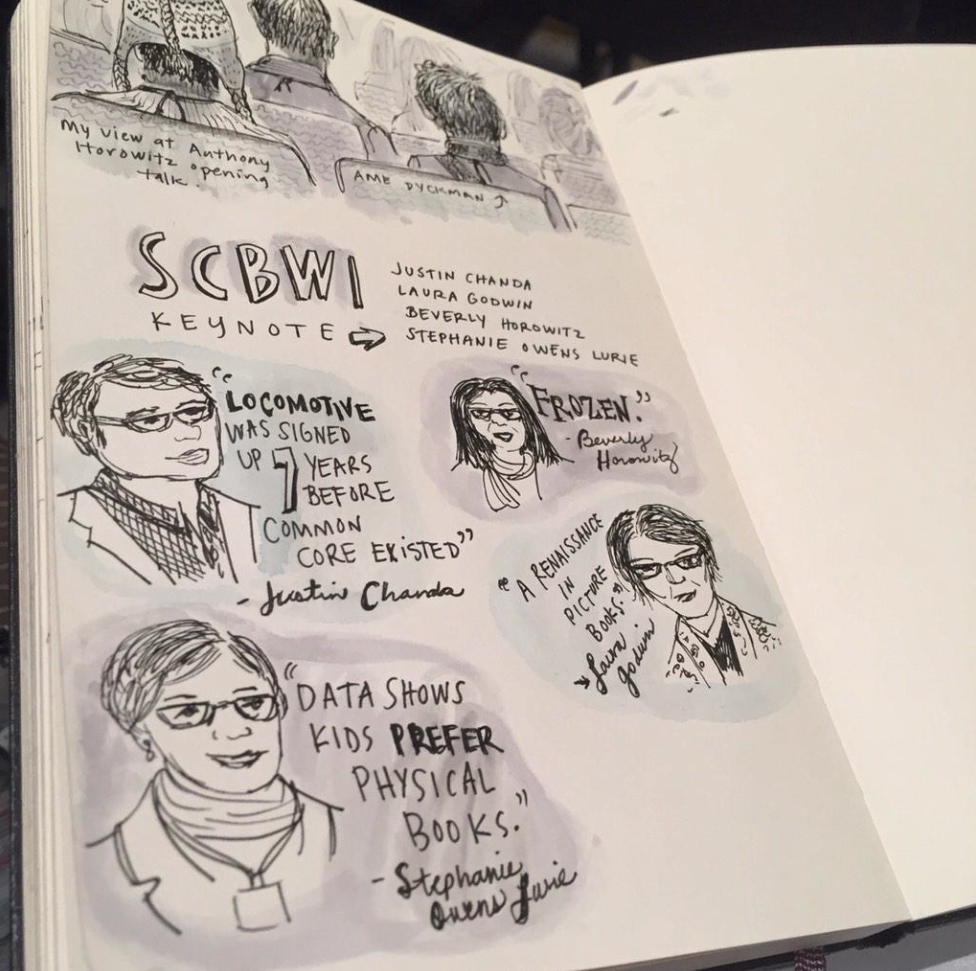 My view at Anthony
Horowitz opening
talk.
AME DYCKMAN ⤴
SCBWI
KEYNOTE ⇨
JUSTIN CHANDA
LAURA GODWIN
BEVERLY HOROWITZ
STEPHANIE OWENS LURIE
"LOCOMOTIVE
WAS SIGNED
UP 7 YEARS
BEFORE
COMMON
CORE EXISTED"
- Justin Chanda
"FROZEN."
- Beverly
Horowitz
"A RENAISSANCE
IN
PICTURE
BOOKS."
↘ Laura
Godwin
"DATA SHOWS
KIDS PREFER
PHYSICAL
BOOKS."
- Stephanie
Owens Lurie